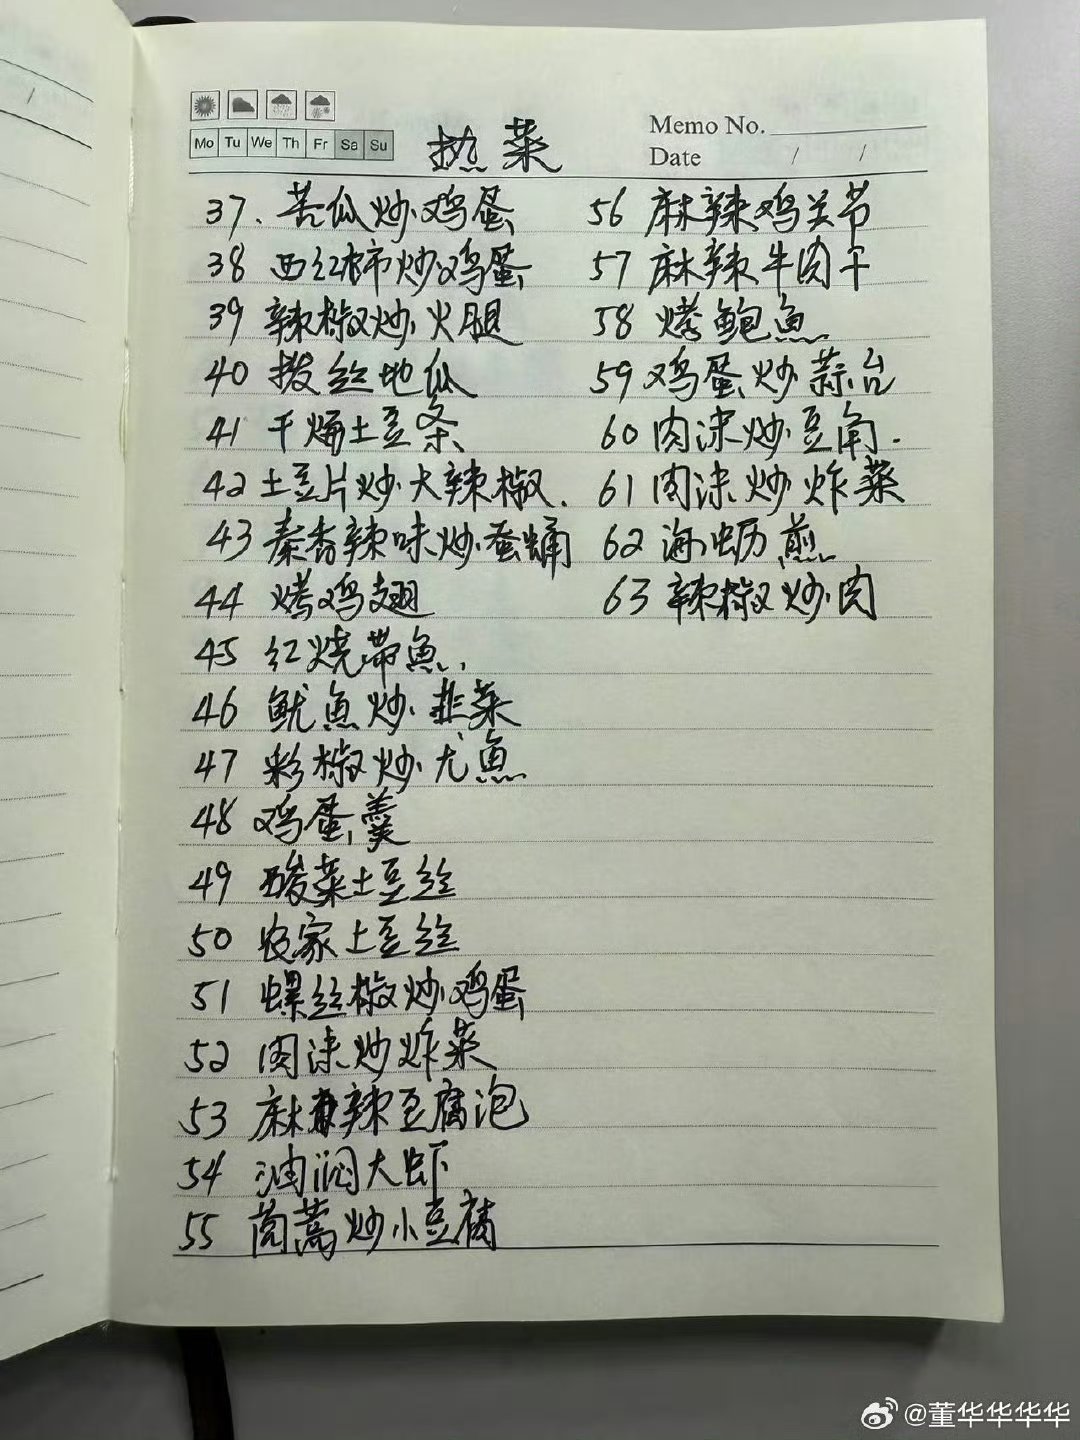 Mo Tu We Th Fr Sa Su
热菜
Memo No.
Date / /
37. 苦瓜炒鸡蛋
38 西红柿炒鸡蛋
39 辣椒炒火腿
40 拨丝地瓜
41 干煸土豆条
42 土豆片炒大辣椒.
43 秦香辣味炒蚕蛹
44 烤鸡翅
45 红烧带魚
46 鱿魚炒韭菜
47 彩椒炒尤魚
48 鸡蛋羹
49 酸菜土豆丝
50 农家土豆丝
51 螺丝椒炒鸡蛋
52 肉沫炒炸菜
53 麻辣豆腐泡
54 油焖大虾
55 茼蒿炒小豆腐
56 麻辣鸡关节
57 麻辣牛肉干
58 烤鲍魚
59 鸡蛋炒蒜台
60 肉沫炒豆角.
61 肉沫炒炸菜
62 海蛎煎
63 辣椒炒肉
@董华华华华